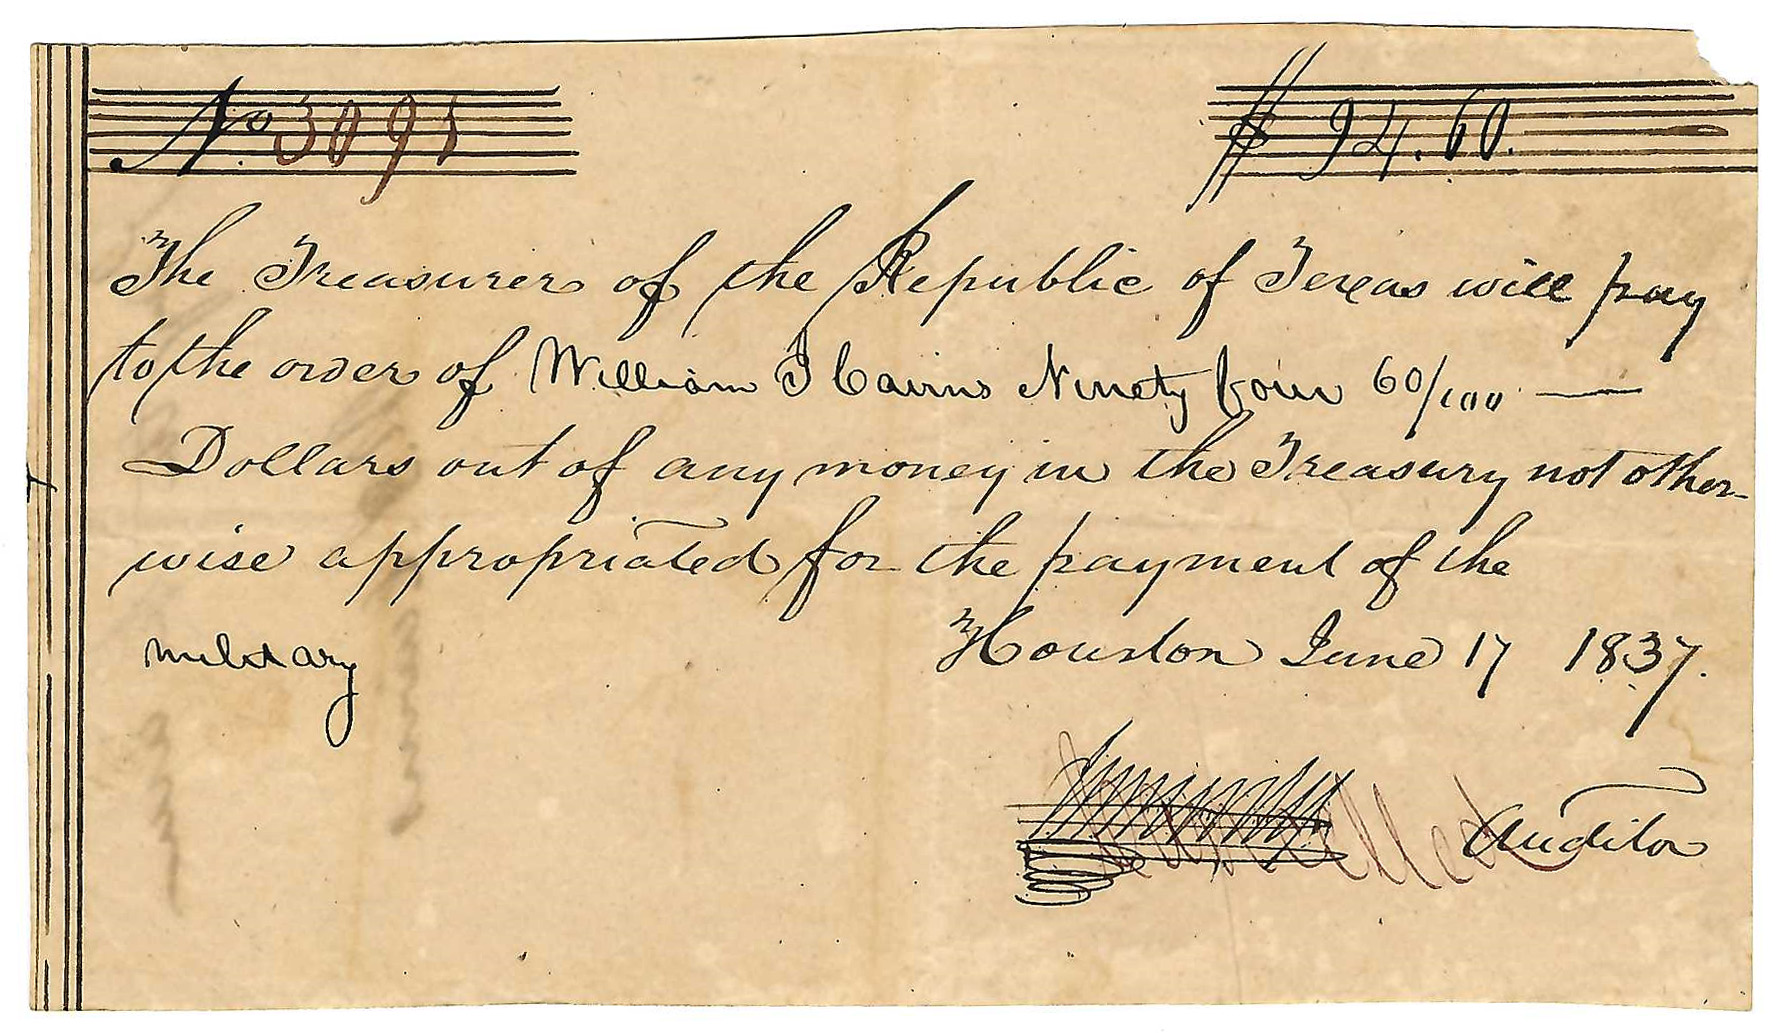 No 3091 $ 94.60.
The Treasurer of the Republic of Texas will pay
to the order of William T Cairns Ninety four 60/100 —
Dollars out of any money in the Treasury not other-
wise appropriated for the payment of the
military Houston June 17 1837.
Cancelled Auditor